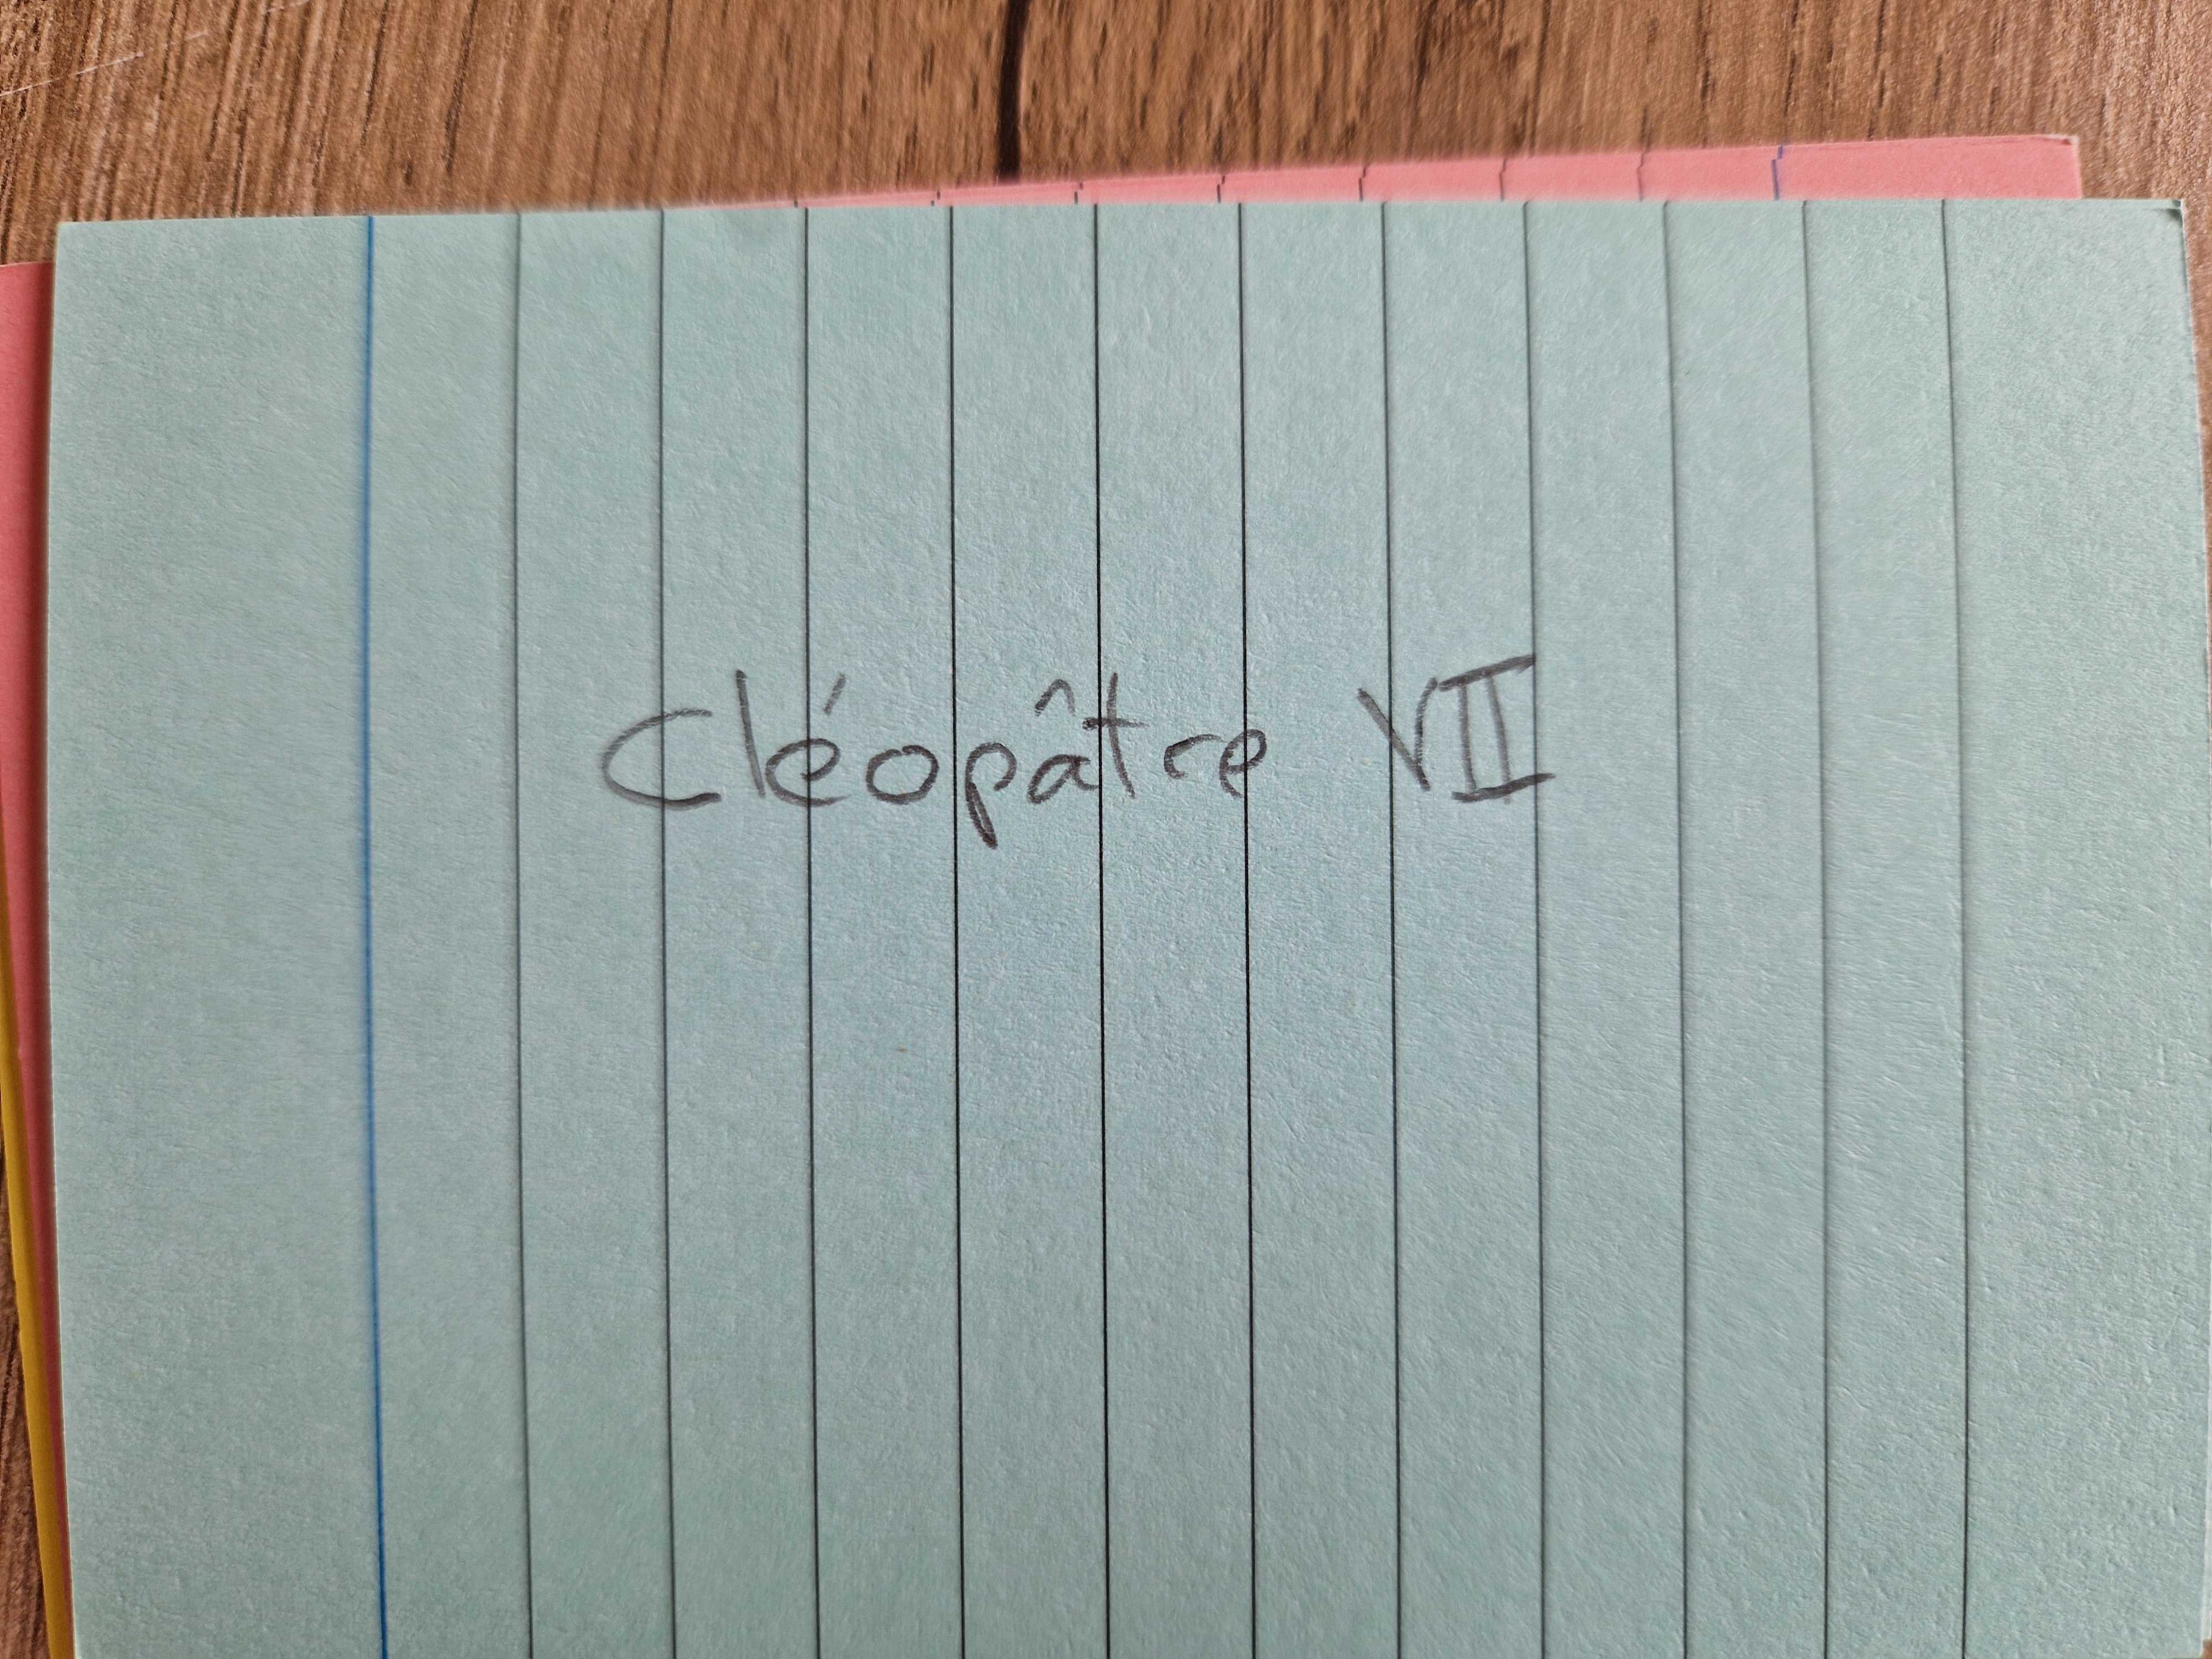 Cléopâtre VII